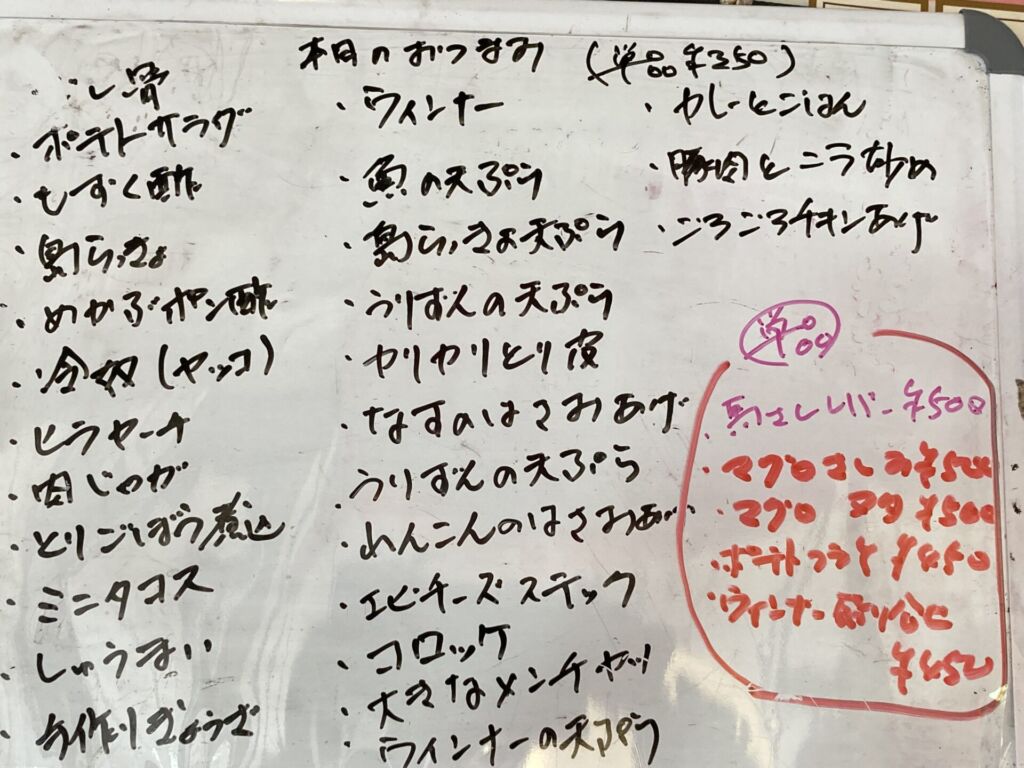 本日のおつまみ (単品¥350)
・し骨
・ポテトサラダ
・もずく酢
・島らっきょ
・めかぶポン酢
・冷奴(ヤッコ)
・ヒラヤーチ
・肉じゃが
・とりごぼう煮込
・ミニタコス
・しゅうまい
・手作りぎょうざ
・ウィンナー
・魚の天ぷら
・島らっきょ天ぷら
・うりずんの天ぷら
・カリカリとり皮
・なすのはさみあげ
・うりずんの天ぷら
・れんこんのはさみあげ
・エビチーズスティック
・コロッケ
・大きなメンチカツ
・ウィンナーの天ぷら
・カレーとごはん
・豚肉とニラ炒め
・ごろごろチキンあげ
単品
・馬さしレバー ¥500
・マグロさしみ¥500
・マグロ ヌタ ¥500
・ポテトフライ ¥450
・ウィンナー盛り合せ
¥450